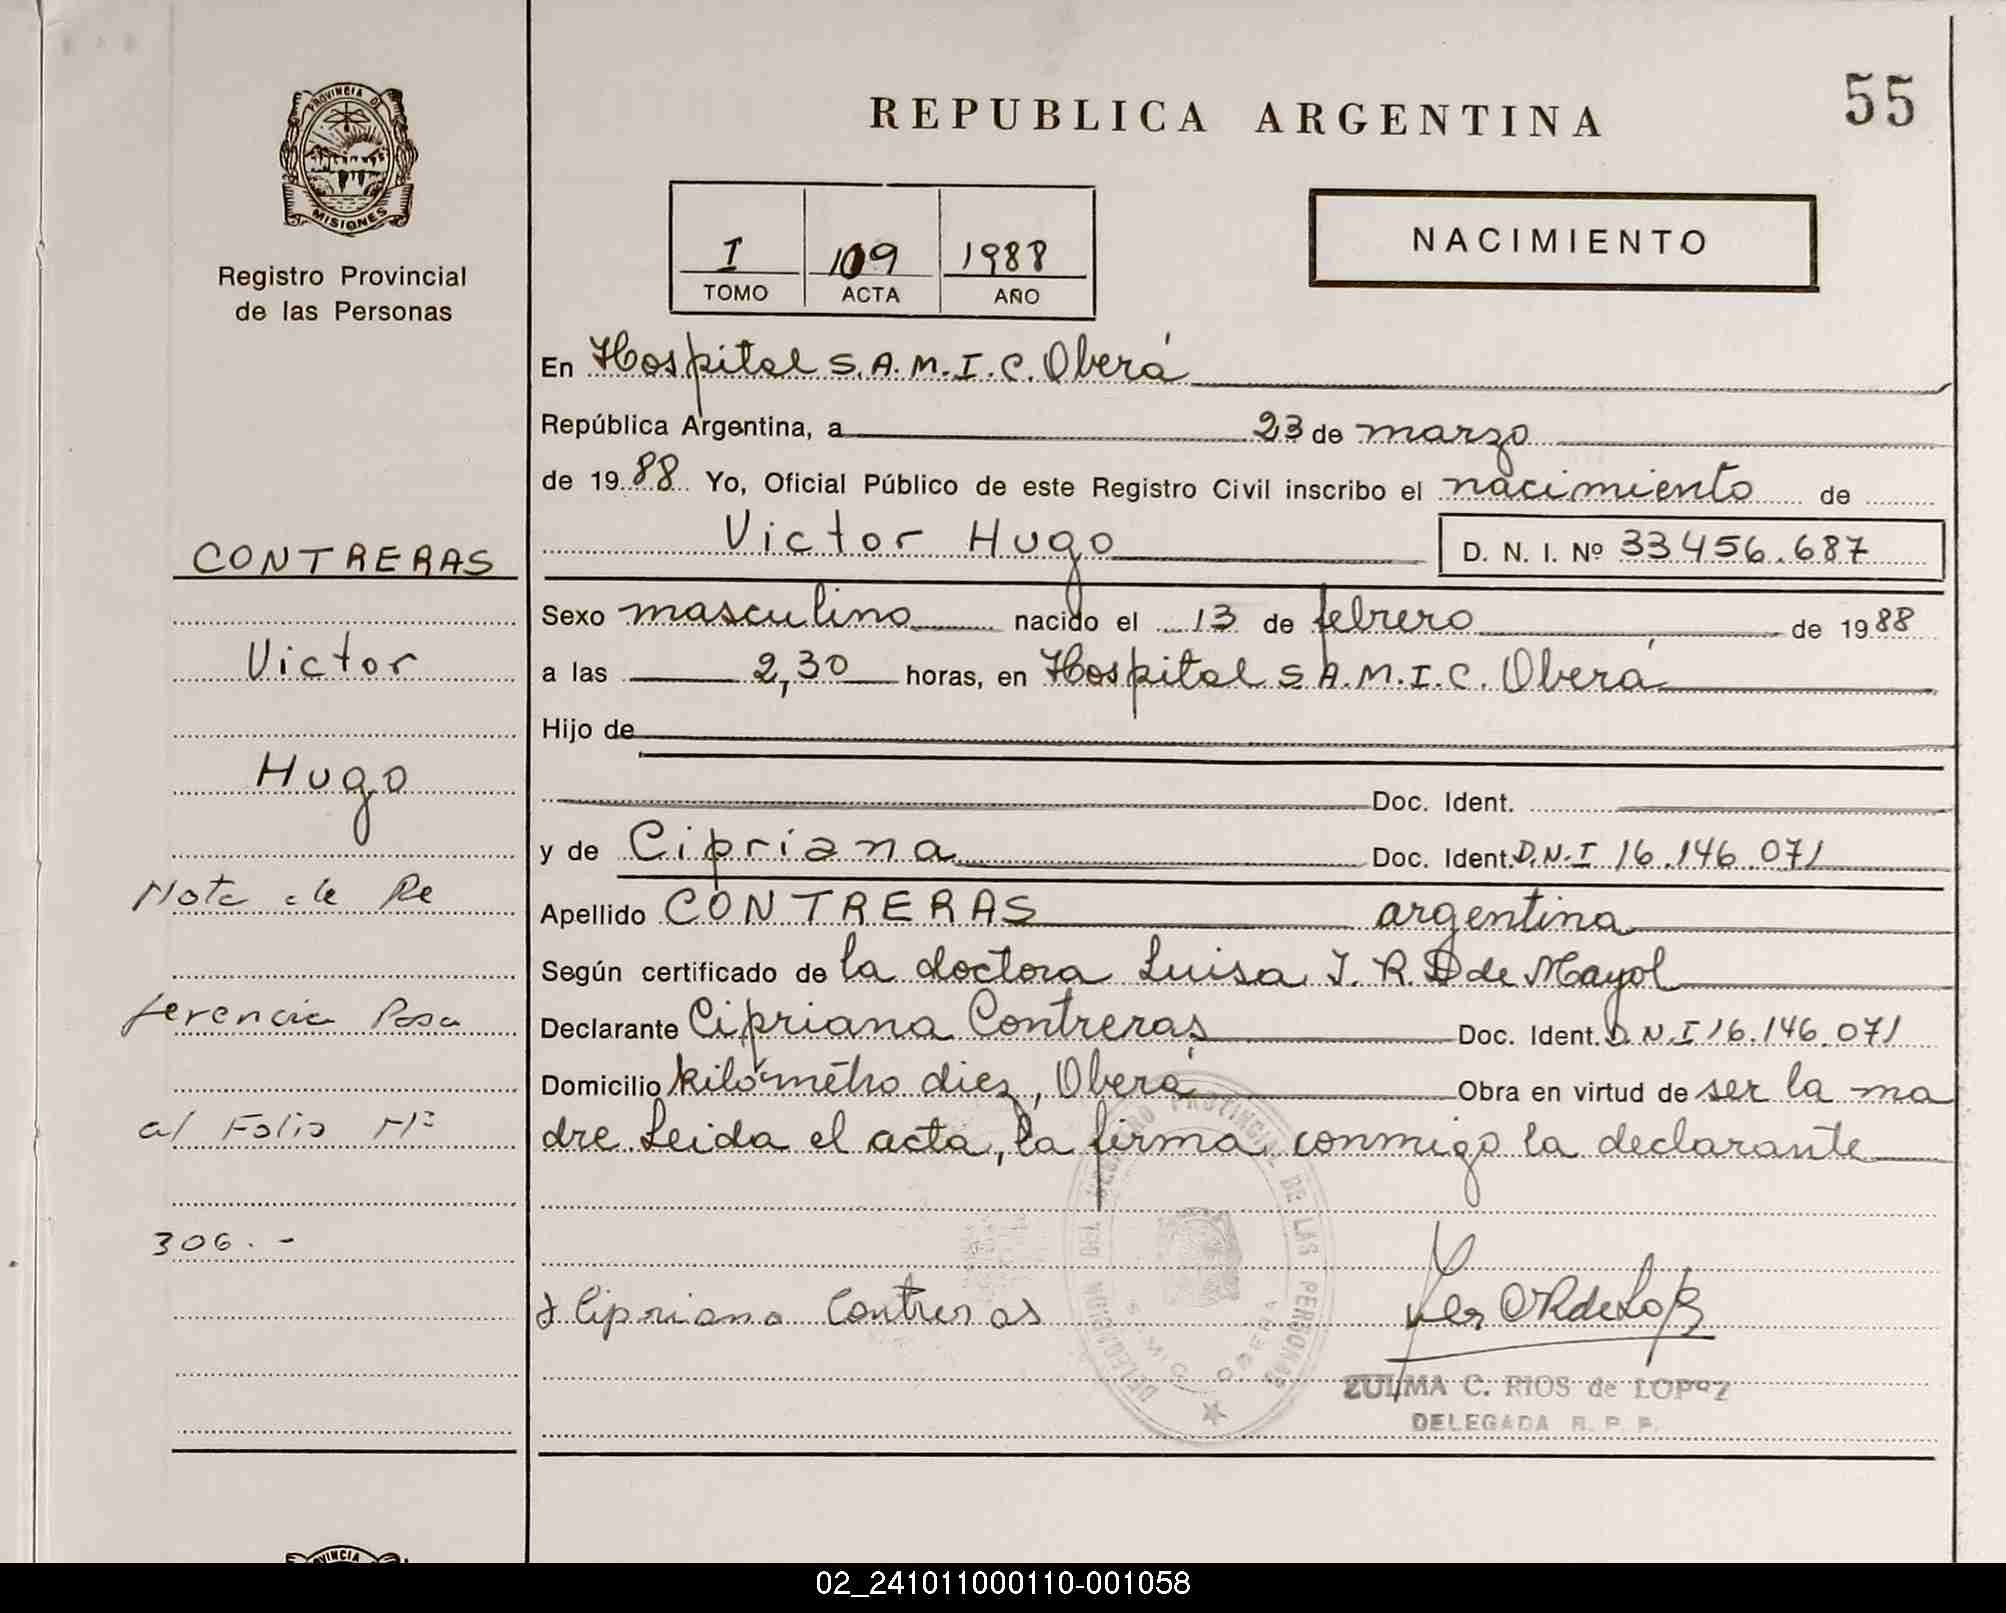 REPUBLICA ARGENTINA
55
PROVINCIA DE
MISIONES
Registro Provincial
de las Personas
I 109 1988
TOMO ACTA AÑO
NACIMIENTO
En Hospital S.A.M.I.C. Oberá
República Argentina, a 23 de marzo
de 1988 Yo, Oficial Público de este Registro Civil inscribo el nacimiento de
Victor Hugo D. N. I. Nº 33.456.687
Sexo masculino nacido el 13 de febrero de 1988
a las 2,30 horas, en Hospital S.A.M.I.C. Oberá
Hijo de
Doc. Ident.
y de Cipriana Doc. Ident. D.N.I 16.146.071
Apellido CONTRERAS argentina
Según certificado de la doctora Luisa I. R. D de Mayol
Declarante Cipriana Contreras Doc. Ident. D.N.I 16.146.071
Domicilio kilómetro diez, Oberá Obra en virtud de ser la ma
dre. Leida el acta, la firma conmigo la declarante
CONTRERAS
Victor
Hugo
Nota de Re
ferencia Pasa
al Folio Nº
306.-
Cipriana Contreras
DELEGACION DEL REGISTRO PROVINCIAL DE LAS PERSONAS
OBERA
ZULMA C. RIOS de LOPEZ
DELEGADA R. P. P.
02_241011000110-001058